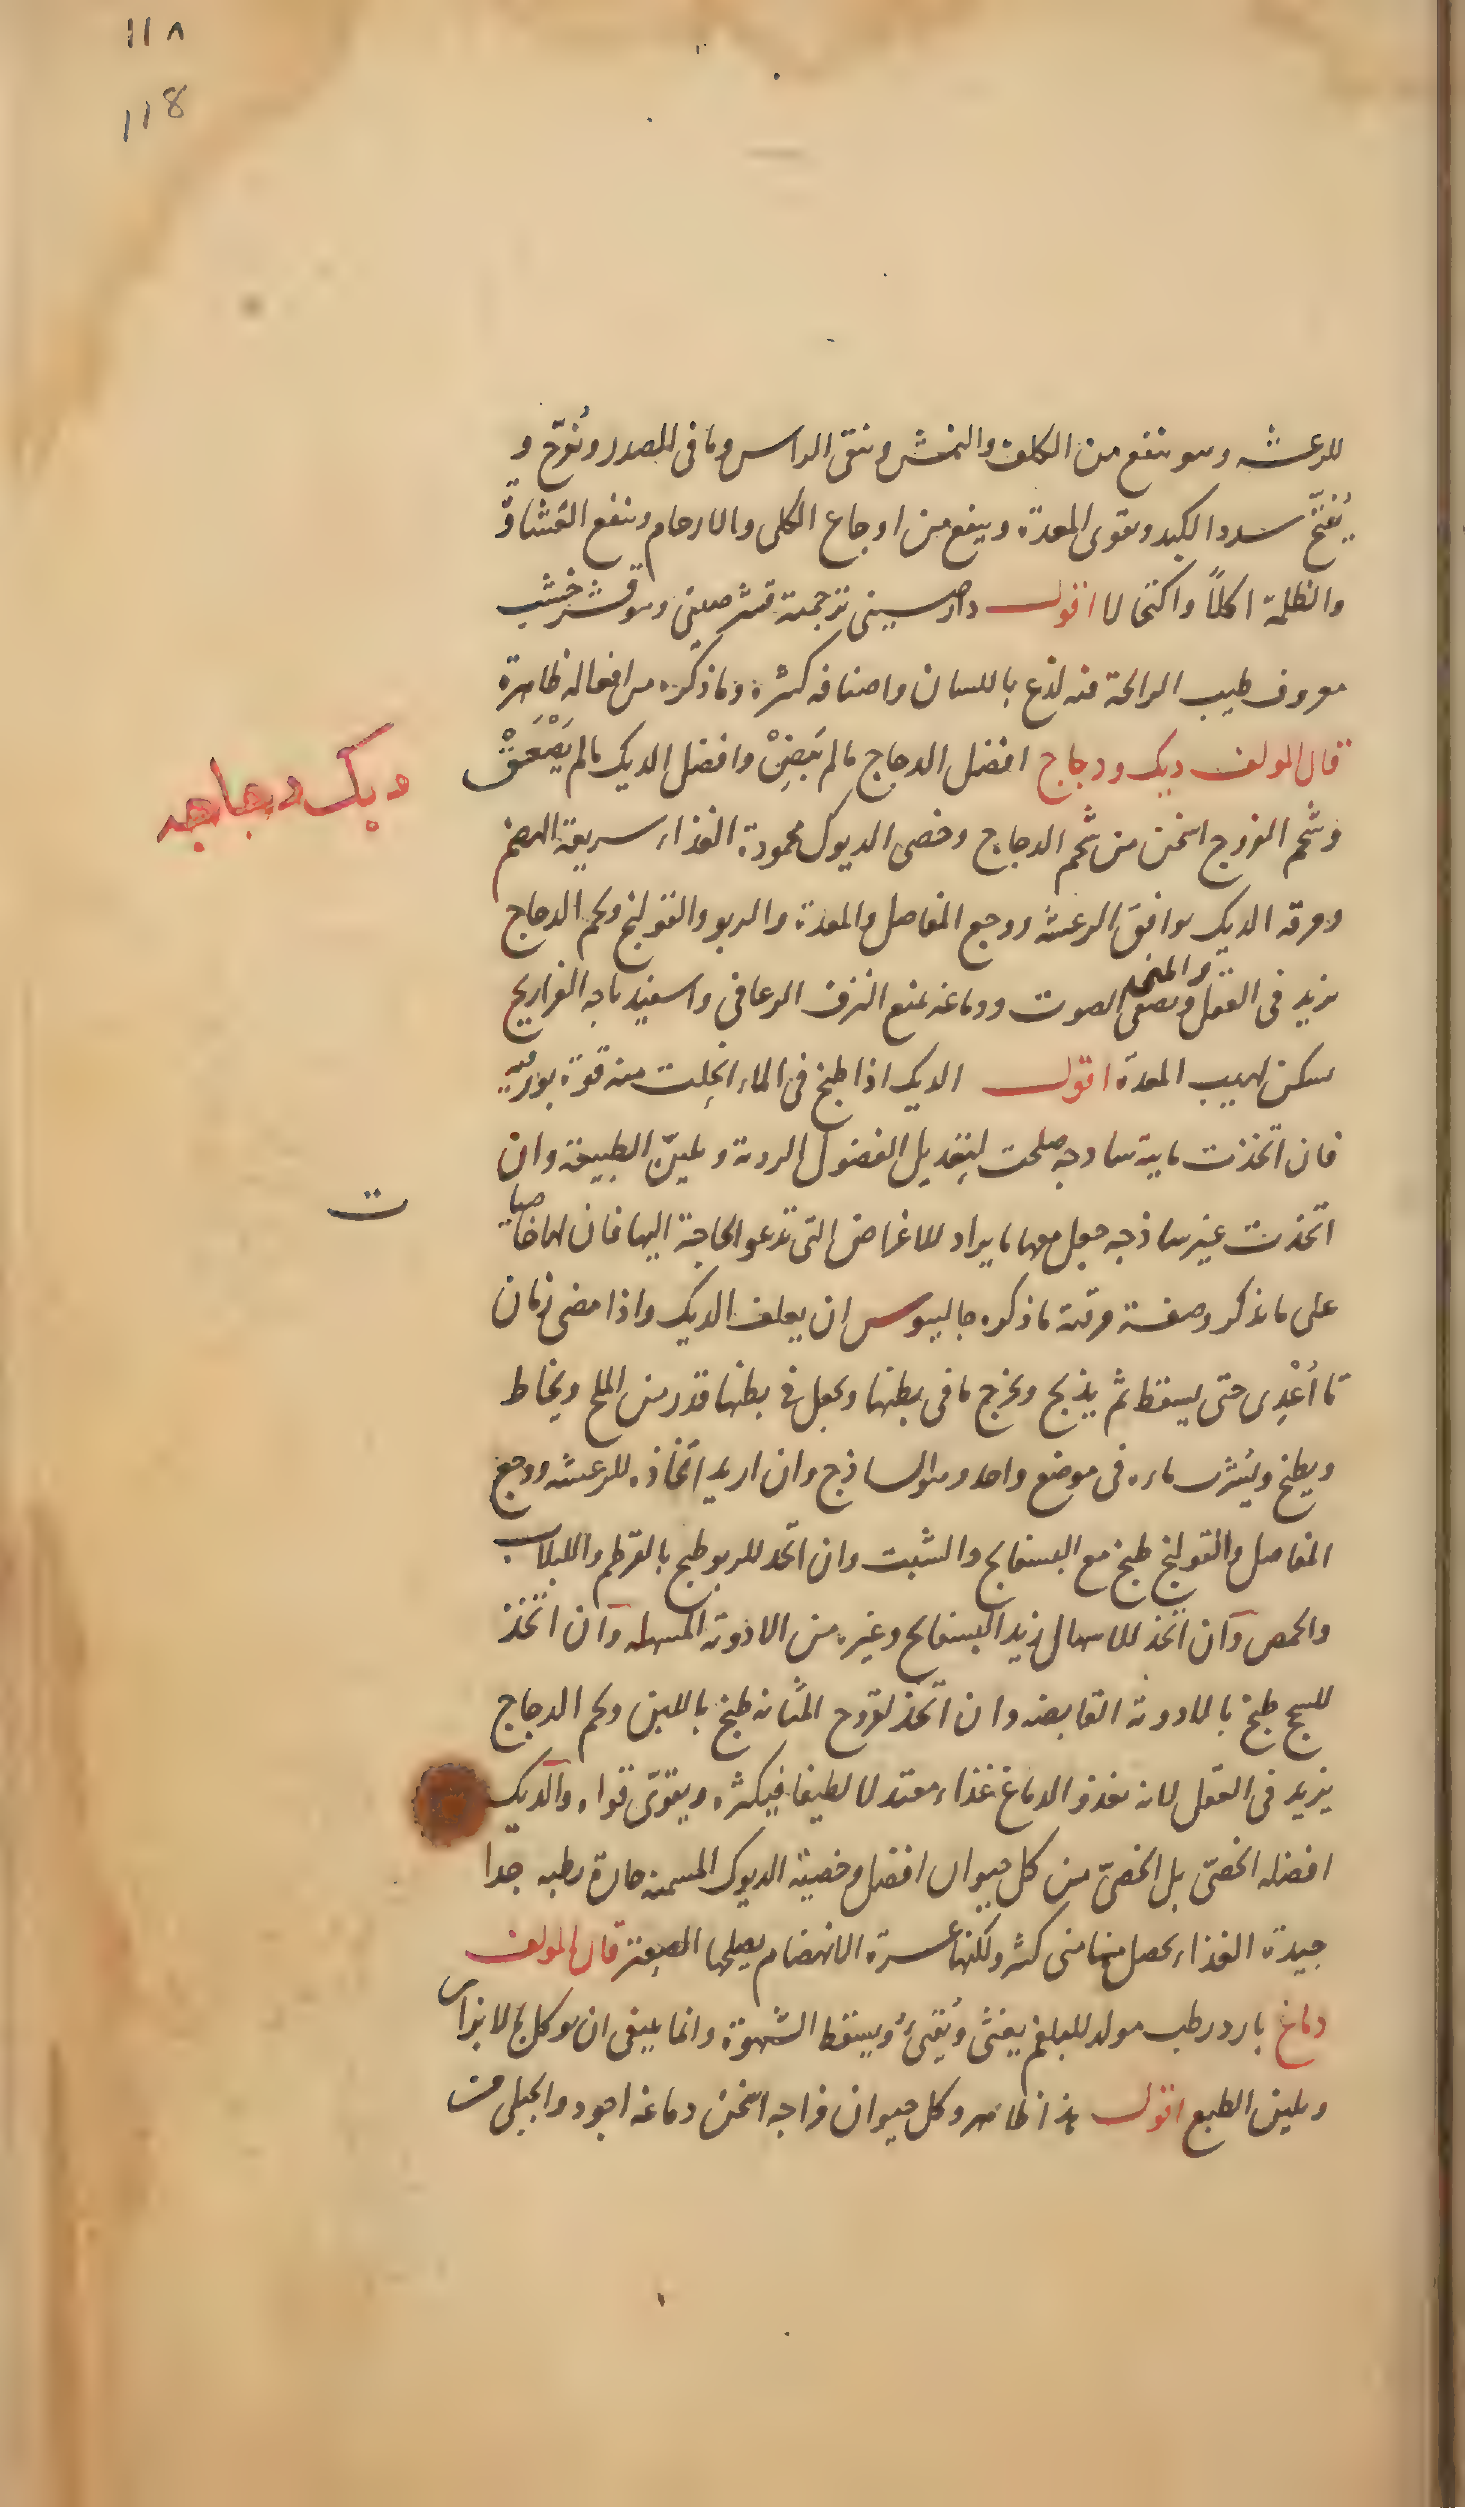 ١١٨
118
للرعشه وهو ينفع من الكلف والنمش وينقى الراس وما فى الصدر ويُفرّح و
يُفتّح سدد الكبد ويقوى المعدة وينفع من اوجاع الكلى والارحام وينفع الغشاوة
والظلمة اكلاً واكتحالا اقول دارصينى ترجمته قشر صينى وهو قشر خشب
معروف طيب الرائحة فيه لذع باللسان واصنافه كثيره وما ذكره من افعاله ظاهرة
قال المولف ديك ودجاج افضل الدجاج مالم يَبِضْنْ وافضل الديك مالم يَصْعَقْ
ديك دجاجه
وشحم الفروج اسخن من شحم الدجاج وخصى الديوك محمودة الغذاء سريعة الهضم
ومرقه الديك يوافق الرعشه ووجع المفاصل والمعدة والربو والقولنج ولحم الدجاج
يزيد فى العقل والمنى ويصفى الصوت ودماغه يمنع النزف الرعافى واسفيدباجه الفراريج
يسكن لهيب المعدة اقول الديك اذا طبخ فى الماء انحلت منه قوة بورقيه
فان اتخذت مايية ساذجه صلحت لتعديل الفضول الرديه وتليين الطبيعة وان
اتخذت غير ساذجه جعل معها ما يراد للاغراض التى تدعو الحاجة اليها فان لها خاصيات
على ما نذكر وصفة مرقته ما ذكره جالينوس ان يعلف الديك واذا مضى زمان
ما اُعْدِى حتى يسقط ثم يذبح ويخرج ما فى بطنها ويجعل فى بطنها قدر من الملح ويخاط
ويطبخ ويُشرب ماءه فى موضع واحد وهو الساذج وان اريد اتخاذه للرعشه ووجع
المفاصل والقولنج طبخ مع البسفايج والشبت وان اتخذ للربو طبخ بالقرطم واللبلاب
والحمص وان اتخذ للاسهال زيد البسفايج وغيره من الادويه المسهله وان اتخذ
للسحج طبخ بالادوية القابضه وان اتخذ لقروح المثانه طبخ باللبن ولحم الدجاج
يزيد فى العقل لانه يغذو الدماغ غذاء معتدلا لطيفا فيكثره ويقوى قواه والديك
افضله الخصىّ بل الخصىّ من كل حيوان افضل وخصية الديوك المسمنه حارة رطبه جدا
جيدة الغذاء يحصل منها منى كثير ولكنها عسرة الانهضام يصلحها الصعتر قال المولف
دماغ بارد رطب مولد للبلغم يغثى ويُقيئُ ويسقط الشهوة وانما ينبغى ان يوكل بالابزار
ويلين الطبع اقول هذا ظاهر وكل حيوان مزاجه اسخن دماغه اجود والجبلى من